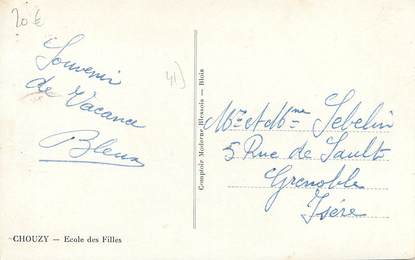 20€
41)
Souvenir
de Vacance
Bleus
Comptoir Moderne Blessois — Blois
Mr et Mme Sebelin
5 Rue de Sault
Grenoble
Isère
CHOUZY — Ecole des Filles